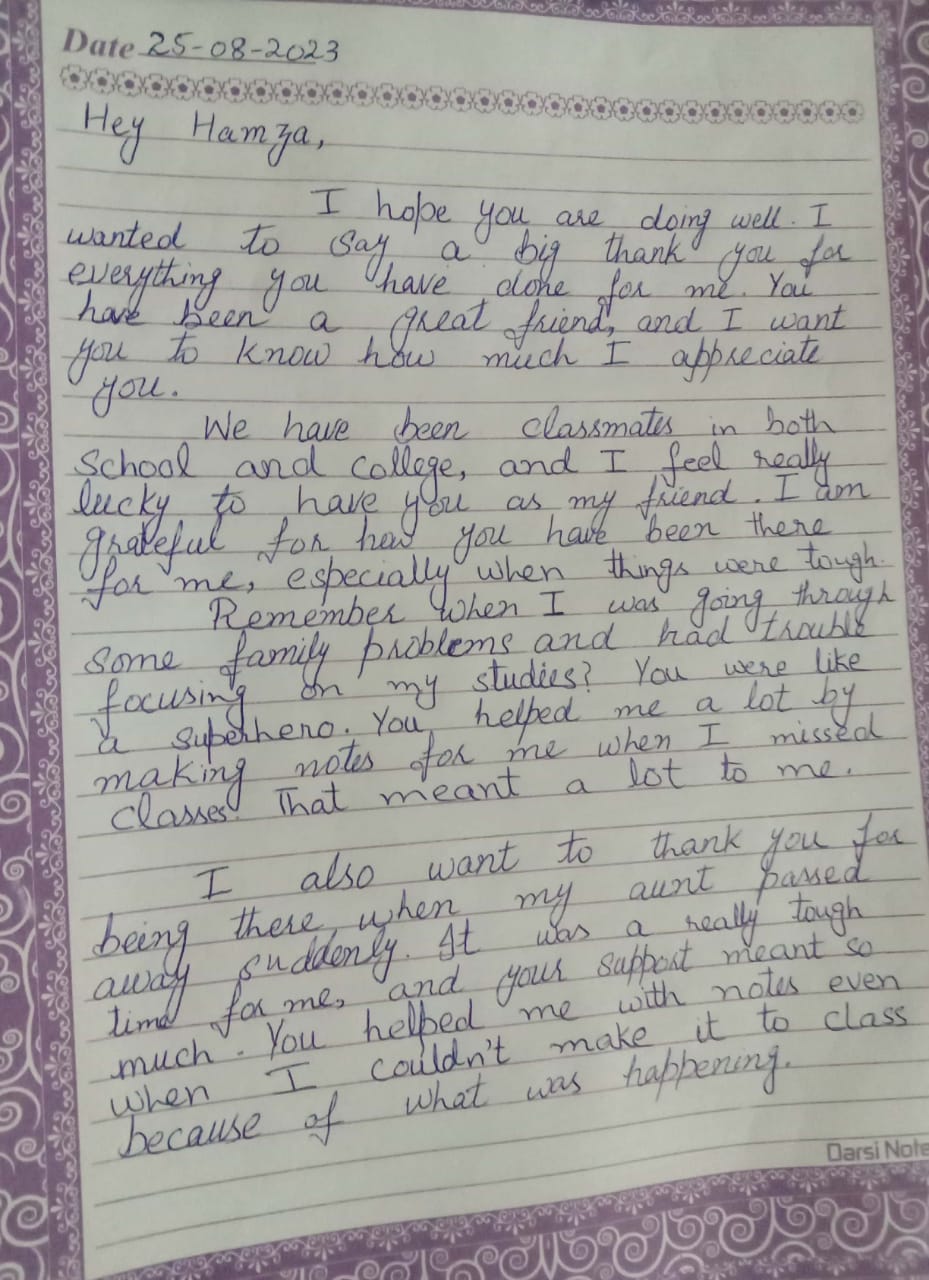 Date 25-08-2023
Hey Hamza,
I hope you are doing well. I
wanted to say a big thank you for
everything you have done for me. You
have been a great friend, and I want
you to know how much I appreciate
you.
We have been classmates in both
School and college, and I feel really
lucky to have you as my friend. I am
grateful for how you have been there
for me, especially when things were tough.
Remember when I was going through
some family problems and had trouble
focusing on my studies? You were like
a superhero. You helped me a lot by
making notes for me when I missed
classes. That meant a lot to me.
I also want to thank you for
being there when my aunt passed
away suddenly. It was a really tough
time for me, and your support meant so
much. You helped me with notes even
when I couldn't make it to class
because of what was happening.
Darsi Note